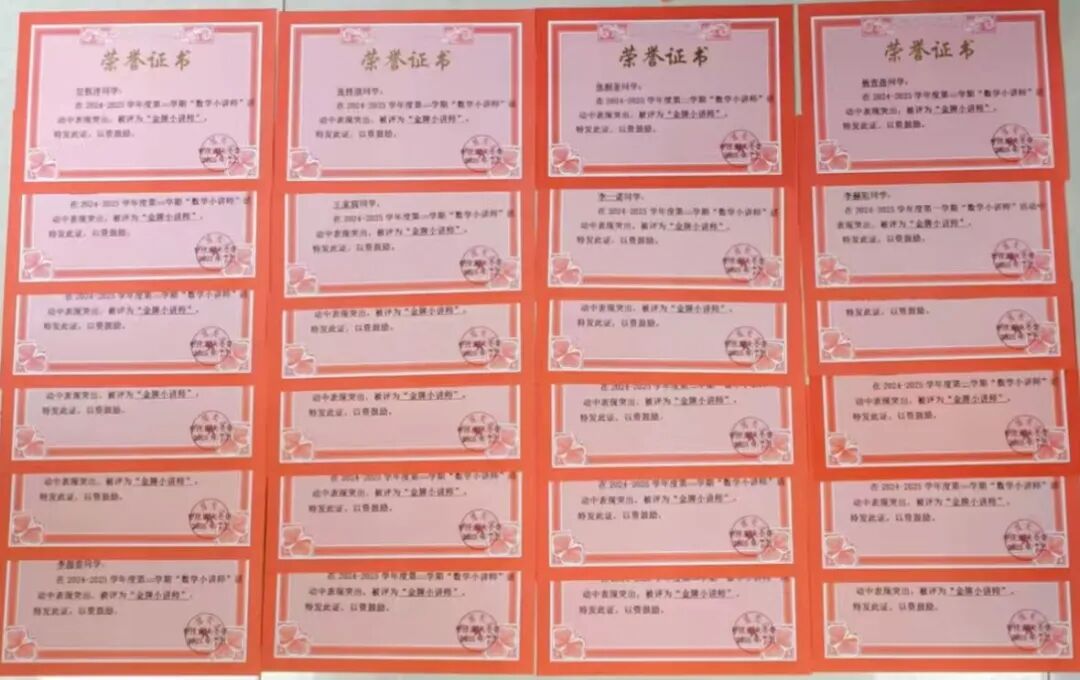 荣誉证书
同学：
在 2024-2025 学年度第二学期“数学小讲师”活
动中表现突出，被评为“金牌小讲师”。
特发此证，以资鼓励。
荣誉证书
同学：
在 2024-2025 学年度第二学期“数学小讲师”活
动中表现突出，被评为“金牌小讲师”。
特发此证，以资鼓励。
荣誉证书
同学：
在 2024-2025 学年度第二学期“数学小讲师”活
动中表现突出，被评为“金牌小讲师”。
特发此证，以资鼓励。
荣誉证书
同学：
在 2024-2025 学年度第二学期“数学小讲师”活
动中表现突出，被评为“金牌小讲师”。
特发此证，以资鼓励。
在 2024-2025 学年度第二学期“数学小讲师”活
动中表现突出，被评为“金牌小讲师”。
特发此证，以资鼓励。
同学：
在 2024-2025 学年度第二学期“数学小讲师”活
动中表现突出，被评为“金牌小讲师”。
特发此证，以资鼓励。
李一诺同学：
在 2024-2025 学年度第二学期“数学小讲师”活
动中表现突出，被评为“金牌小讲师”。
特发此证，以资鼓励。
同学：
在 2024-2025 学年度第一学期“数学小讲师”活动中
表现突出，被评为“金牌小讲师”。
特发此证，以资鼓励。
在 2024-2025 学年度第二学期“数学小讲师”活
动中表现突出，被评为“金牌小讲师”。
特发此证，以资鼓励。
动中表现突出，被评为“金牌小讲师”。
特发此证，以资鼓励。
动中表现突出，被评为“金牌小讲师”。
特发此证，以资鼓励。
特发此证，以资鼓励。
动中表现突出，被评为“金牌小讲师”。
特发此证，以资鼓励。
动中表现突出，被评为“金牌小讲师”。
特发此证，以资鼓励。
在 2024-2025 学年度第
动中表现突出，被评为“金牌小讲师”。
特发此证，以资鼓励。
在 2024-2025 学年度第二学期“数学小讲师”活
动中表现突出，被评为“金牌小讲师”。
特发此证，以资鼓励。
动中表现突出，被评为“金牌小讲师”。
特发此证，以资鼓励。
在 2024-2025 学年度第二学期“数学小讲师”活
动中表现突出，被评为“金牌小讲师”。
特发此证，以资鼓励。
在 2024-2025 学年度第二学期“数学小讲师”活
动中表现突出，被评为“金牌小讲师”。
特发此证，以资鼓励。
在 2024-2025 学年度第二学期“数学小讲师”活
动中表现突出，被评为“金牌小讲师”。
特发此证，以资鼓励。
同学：
在 2024-2025 学年度第二学期“数学小讲师”活
动中表现突出，被评为“金牌小讲师”。
特发此证，以资鼓励。
在 2024-2025 学年度第二学期“数学小讲师”活
动中表现突出，被评为“金牌小讲师”。
特发此证，以资鼓励。
在 2024-2025 学年度第二学期“数学小讲师”活
动中表现突出，被评为“金牌小讲师”。
特发此证，以资鼓励。
动中表现突出，被评为“金牌小讲师”。
特发此证，以资鼓励。